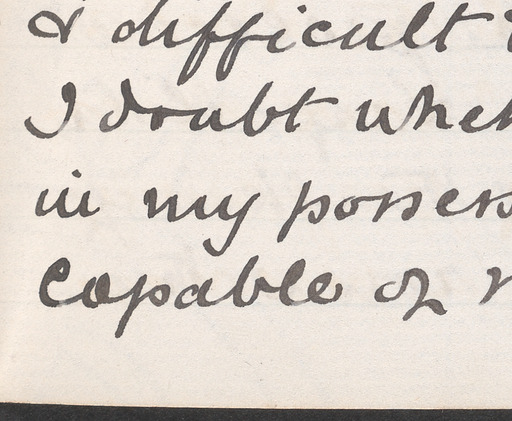 & difficult
I doubt whet
in my possess
capable of